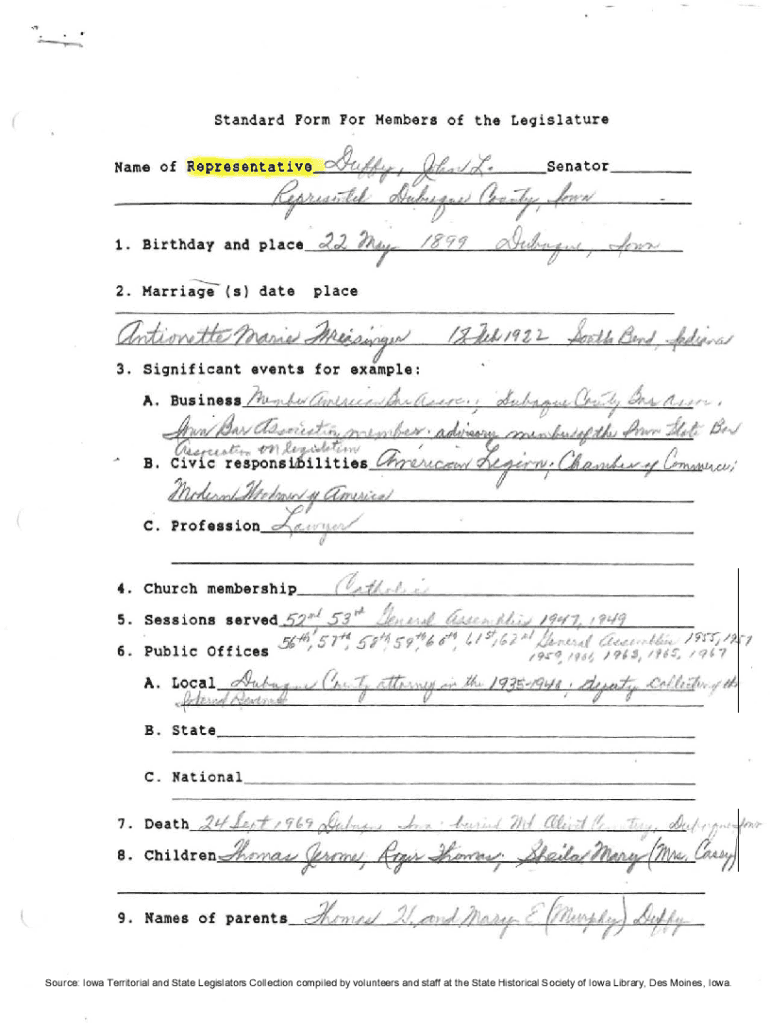 Standard Form For Members of the Legislature
Name of Representative Duffy, John L. Senator
Represented Dubuque County, Iowa
1. Birthday and place 22 May 1899 Dubuque, Iowa
2. Marriage (s) date place
Antionette Marie 18 Feb 1922 South Bend, Indiana
3. Significant events for example:
A. Business Member American Bar Assoc.; Dubuque County Bar Assoc.
Iowa Bar Association member; advisory member of the Iowa State Bar
Association on legislation
B. Civic responsibilities American Legion; Chamber of Commerce;
Modern Woodmen of America
C. Profession Lawyer
4. Church membership Catholic
5. Sessions served 52nd 53rd General Assemblies 1947, 1949
56th, 57th, 58th, 59th, 60th, 61st, 62nd General Assemblies 1955, 1957
6. Public Offices 1959, 1961, 1963, 1965, 1967
A. Local Dubuque County attorney in the 1935-1940; deputy collector of the
Internal Revenue
B. State
C. National
7. Death 24 Sept 1969 Dubuque Iowa buried Mt Olivet Dubuque Iowa
8. Children Thomas Jerome; Roger Thomas; Sheila Mary (Mrs. Casey)
9. Names of parents Thomas H. and Mary E (Murphy) Duffy
Source: Iowa Territorial and State Legislators Collection compiled by volunteers and staff at the State Historical Society of Iowa Library, Des Moines, Iowa.